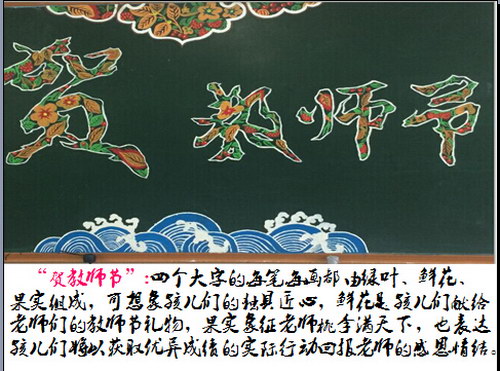 贺 教师节
“贺教师节”:四个大字的每笔每画都由绿叶、鲜花、
果实组成，可想象孩儿们的独具匠心，鲜花是孩儿们献给
老师们的教师节礼物，果实象征老师桃李满天下，也表达
孩儿们将以获取优异成绩的实际行动回报老师的感恩情结。